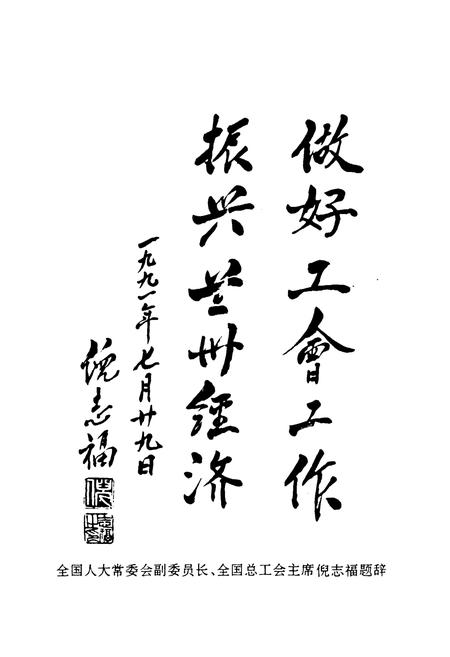 做好工會工作
振兴兰州经济
一九九一年七月廿九日
倪志福
全国人大常委会副委员长、全国总工会主席倪志福题辞